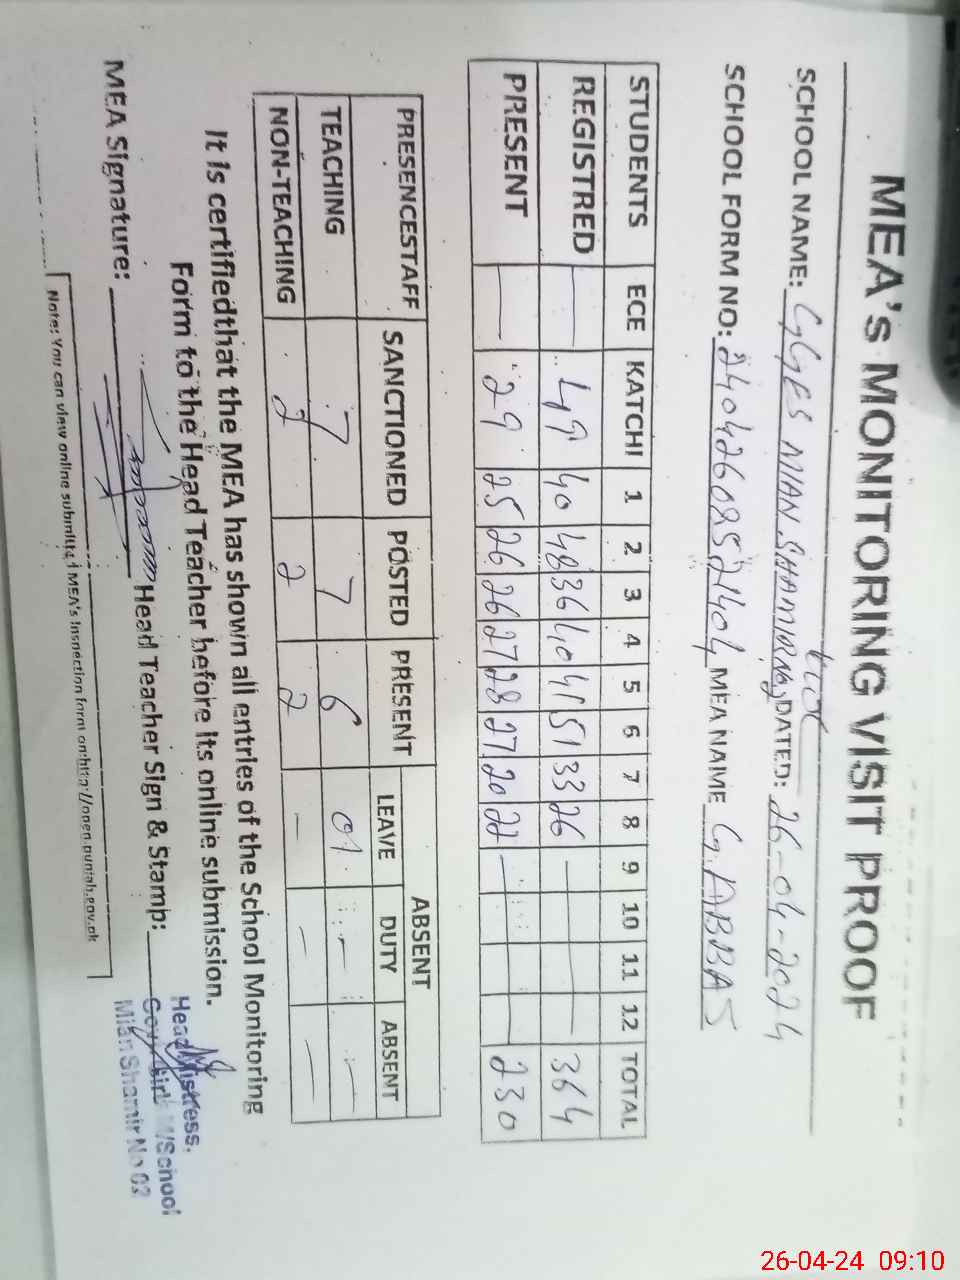 MEA's MONITORING VISIT PROOF
SCHOOL NAME: GGES MIAN SHAMIR No 2 DATED: 26-04-2024
SCHOOL FORM NO: MEA NAME G. ABBAS
STUDENTS ECE KATCHI 1 2 3 4 5 6 7 8 9 10 11 12 TOTAL
REGISTRED — 49 40 48 36 40 41 51 33 26 — — — — 364
PRESENT — 29 25 26 26 27 28 27 20 22 — — — — 230
PRESENCESTAFF SANCTIONED POSTED PRESENT ABSENT
LEAVE DUTY ABSENT
TEACHING 7 7 6 01 — —
NON-TEACHING 2 2 2 — — —
It is certifiedthat the MEA has shown all entries of the School Monitoring
Form to the Head Teacher before its online submission.
MEA Signature: Head Teacher Sign & Stamp:
Head Mistress.
Govt Girl M/School
Mian Shamir No 02
Note: You can view online submitted MEA's Inspection form on:http://open.punjab.gov.pk
26-04-24 09:10